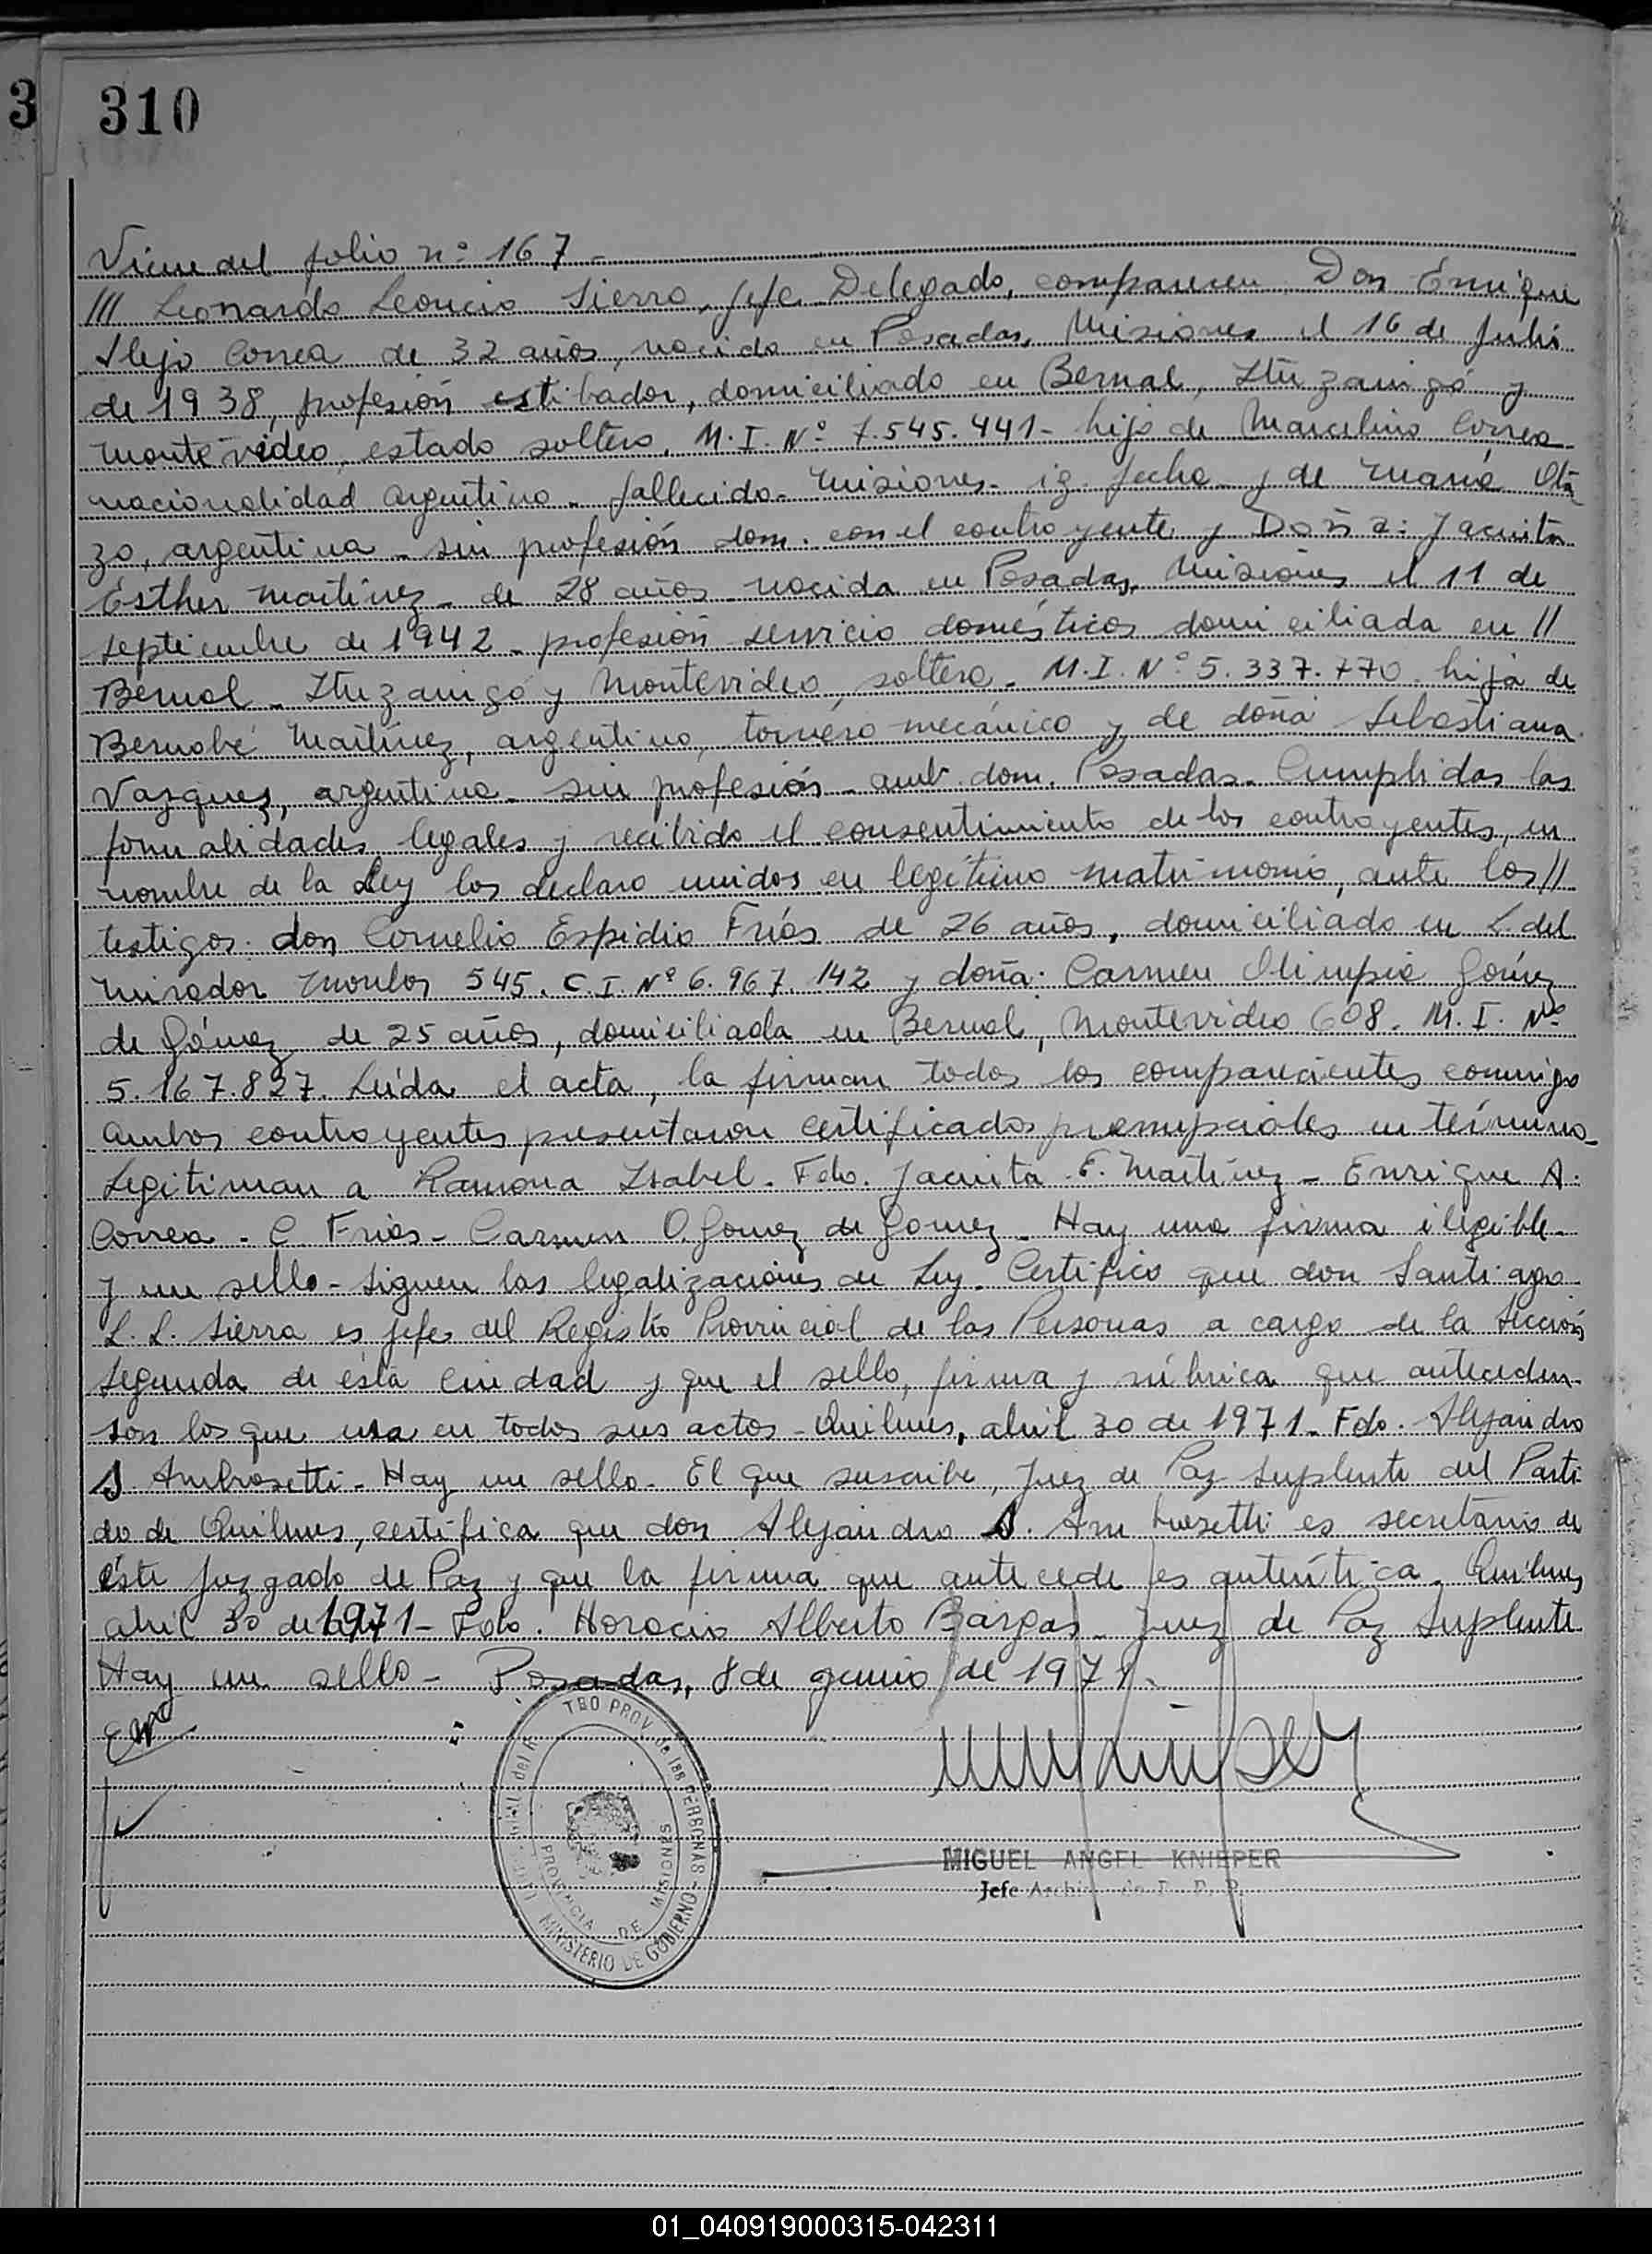 3
310
Viene del folio n: 167 -
/// Leonardo Leoncio Sierra, Jefe Delegado, comparecen Don Enrique
Alejo Correa de 32 años, nacido en Posadas, Misiones el 16 de Julio
de 1938, profesión estibador, domiciliado en Bernal, Ituzaingó y
Montevideo, estado soltero, M.I. Nº 7.545.441- hijo de Marcelino Correa
nacionalidad argentino - fallecido - Misiones - ig. fecha y de María Ota
zo, argentina - sin profesión dom. con el contrayente y Doña: Jacinta
Esther Martínez - de 28 años nacida en Posadas, Misiones el 11 de
septiembre de 1942 - profesión servicio domésticos domiciliada en //
Bernal - Ituzaingó y Montevideo, soltera - M.I. Nº 5.337.770. hija de
Bernabé Martínez, argentino, tornero mecánico y de doña Sebastiana
Vazquez, argentina - sin profesión - amb. dom. Posadas - Cumplidas las
formalidades legales y recibido el consentimiento de los contrayentes, en
nombre de la Ley los declaro unidos en legítimo matrimonio, ante los //
testigos: don Cornelio Espidio Frías de 26 años, domiciliado en L. del
Mirador 545. C.I. Nº 6.967.142 y doña: Carmen Olimpia Gómez
de Gómez de 25 años, domiciliada en Bernal, Montevideo 608. M.I. Nº
5.167.827. Leída el acta, la firman todos los comparecientes conmigo
Ambos contrayentes presentaron certificados prenupciales en término -
Legitiman a Ramona Isabel. Fdo. Jacinta E. Martínez - Enrique A.
Correa - C Frías - Carmen O. Gomez de Gomez - Hay una firma ilegible -
y un sello - Siguen las legalizaciones de Ley. Certifico que don Santiago
L. L. Sierra es jefe del Registro Provincial de las Personas a cargo de la Sección
Segunda de ésta ciudad y que el sello, firma y rúbrica que anteceden
son los que usa en todos sus actos - Quilmes, abril 30 de 1971 - Fdo. Alejandro
S. Ambrosetti - Hay un sello - El que suscribe, Juez de Paz Suplente del Parti
do de Quilmes, certifica que don Alejandro S. Ambrosetti es secretario de
éste Juzgado de Paz y que la firma que antecede es auténtica. Quilmes,
abril 30 de 1971 - Fdo. Horacio Alberto Bargas - Juez de Paz Suplente
Hay un sello - Posadas, 8 de junio de 1971 -
PROV. de las PERSONAS - MINISTERIO DE GOBIERNO
PROVINCIA DE MISIONES
MIGUEL ANGEL KNIEPER
Jefe
01_040919000315-042311